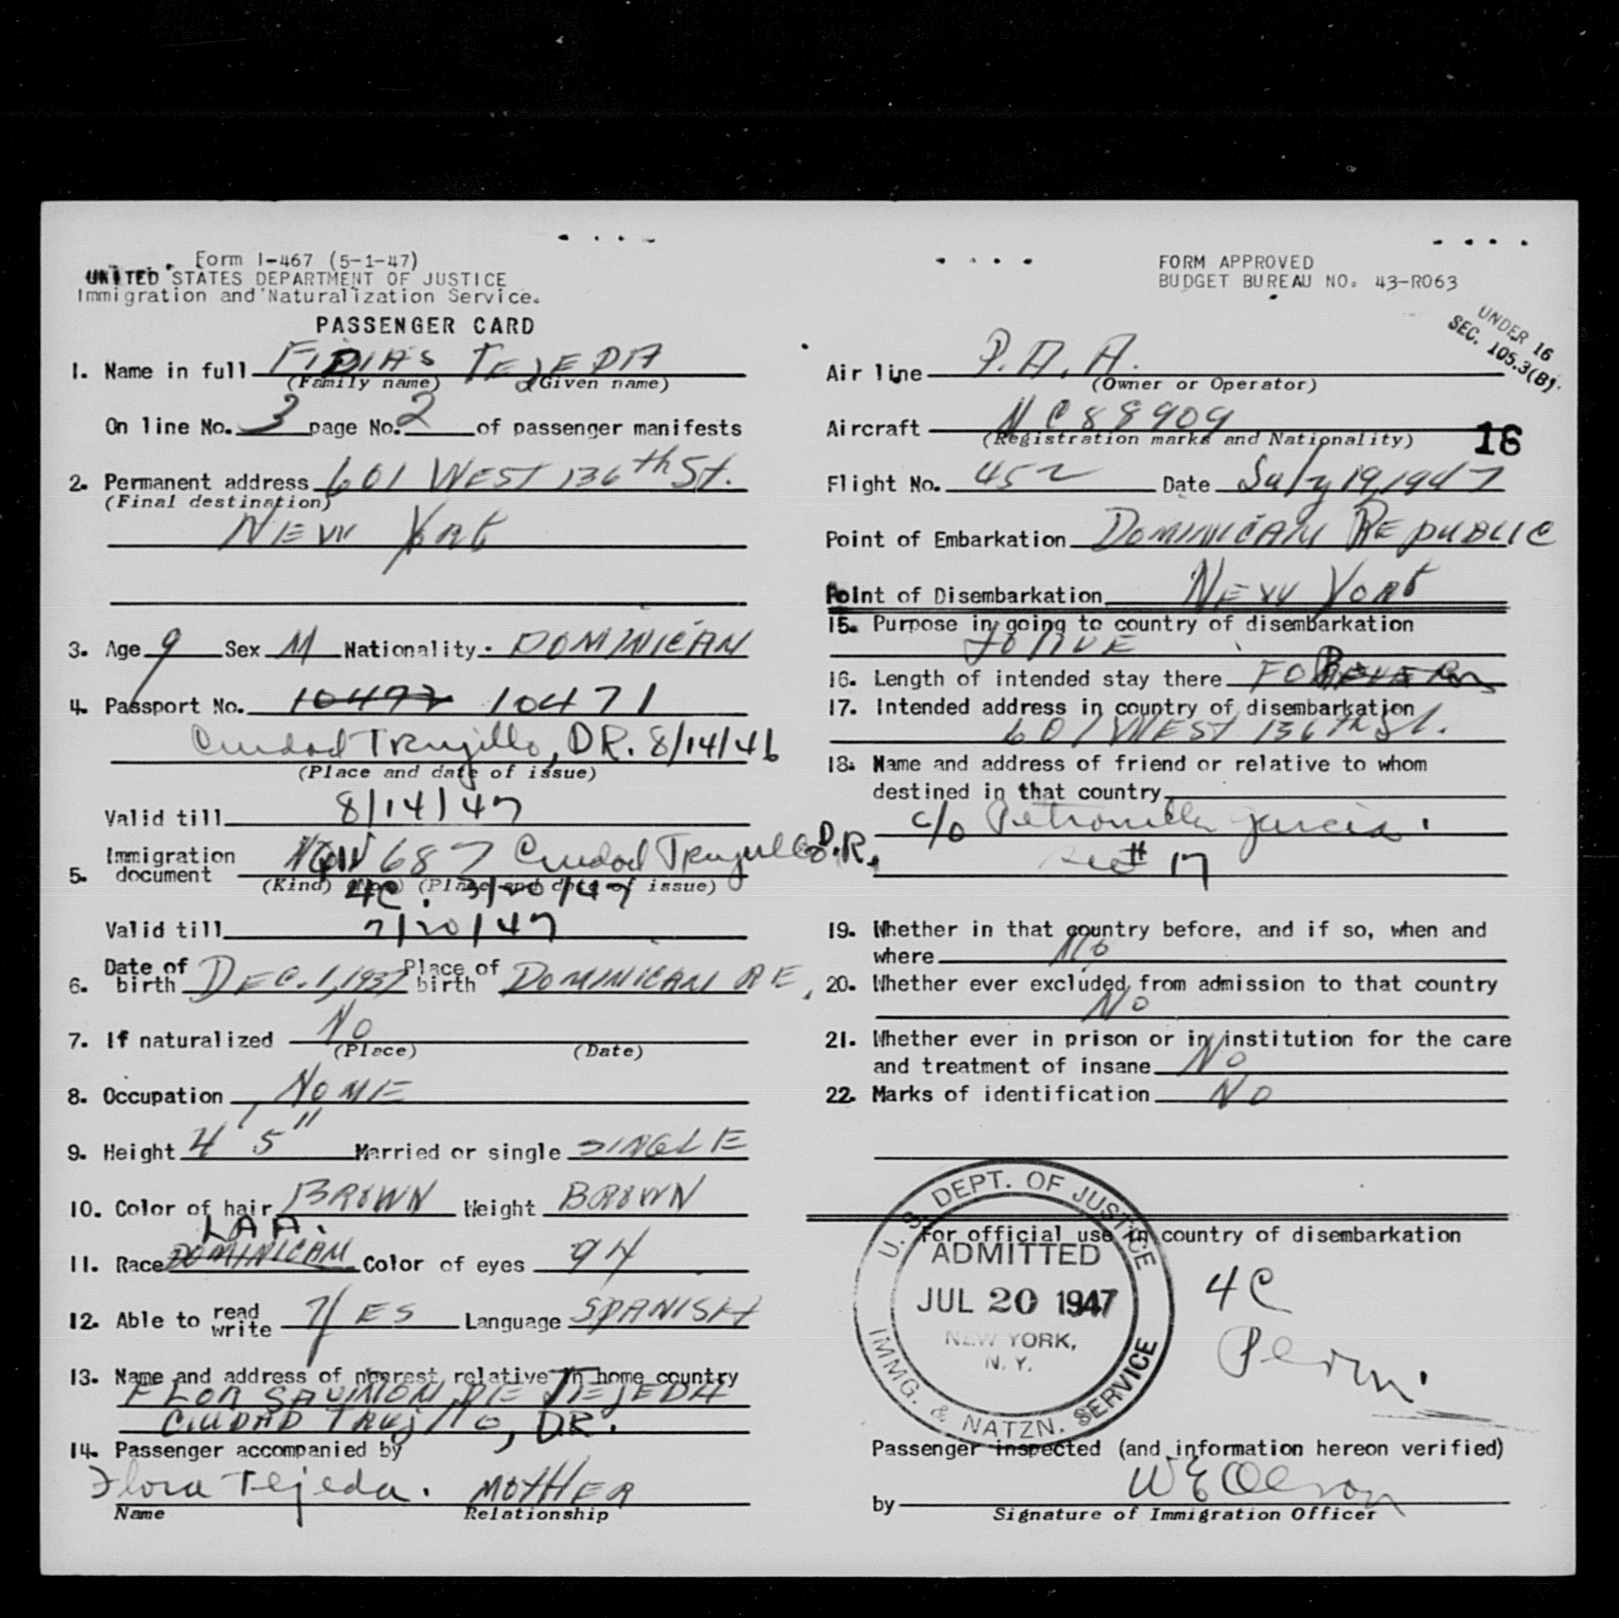 Form I-467 (5-1-47)
UNITED STATES DEPARTMENT OF JUSTICE
Immigration and Naturalization Service.
PASSENGER CARD
1. Name in full FIDIAS TEJEDA
(Family name) (Given name)
On line No. 3 page No. 2 of passenger manifests
2. Permanent address 601 WEST 136th St.
(Final destination)
NEW York
3. Age 9 Sex M Nationality DOMINICAN
4. Passport No. 10472 10471
Ciudad Trujillo, D.R. 8/14/46
(Place and date of issue)
Valid till 8/14/47
5. Immigration document 687 Ciudad Trujillo D.R.
(Kind) (No.) (Place and date of issue)
4C. 3/20/47
Valid till 7/20/47
6. Date of birth DEC. 1, 1937 Place of birth DOMINICAN RE.
7. If naturalized NO
(Place) (Date)
8. Occupation NONE
9. Height 4' 5" Married or single SINGLE
10. Color of hair BROWN Weight BROWN
LAA.
11. Race DOMINICAN Color of eyes 94
12. Able to read write YES Language SPANISH
13. Name and address of nearest relative in home country
FLOR SAVINON DE TEJEDA
CIUDAD Trujillo, D.R.
14. Passenger accompanied by
Flora Tejeda. MOTHER
Name Relationship
FORM APPROVED
BUDGET BUREAU NO. 43-R063
UNDER 16
SEC. 105.3(B).
Air line P.A.A.
(Owner or Operator)
Aircraft NC88909
(Registration marks and Nationality)
16
Flight No. 452 Date July 19, 1947
Point of Embarkation DOMINICAN REPUBLIC
Point of Disembarkation NEW YORK
15. Purpose in going to country of disembarkation
TO LIVE
16. Length of intended stay there
17. Intended address in country of disembarkation
601 WEST 136th St.
18. Name and address of friend or relative to whom
destined in that country
c/o Petronila Garcia.
# 17
19. Whether in that country before, and if so, when and
where No
20. Whether ever excluded from admission to that country
No
21. Whether ever in prison or in institution for the care
and treatment of insane No
22. Marks of identification No
For official use in country of disembarkation
U. S. DEPT. OF JUSTICE
ADMITTED
JUL 20 1947
NEW YORK,
N. Y.
IMMG. & NATZN. SERVICE
4C
Perm.
Passenger inspected (and information hereon verified)
by W E Olson
Signature of Immigration Officer